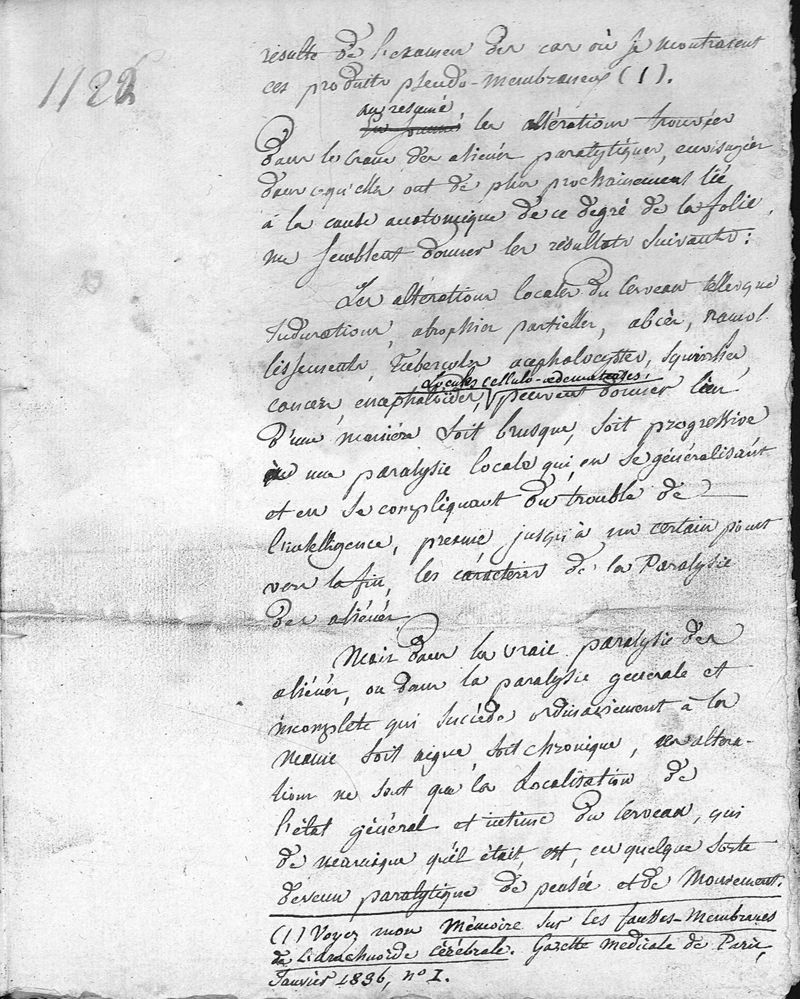 1122
résulte de l'examen des cas où se montraient
ces produits pseudo-membraneux (1).
en résumé
les altérations trouvées
dans le crane des aliénés paralytiques, envisagées
dans ce qu'elles ont de plus prochainement lié
à la cause anatomique de ce degré de la folie,
me semblent donner les résultats suivants:
Les altérations locales du Cerveau telles que
Indurations, atrophies partielles, abcès, ramol-
lissements, Tubercules, acephalocystes, squirrhes,
Locules cellulo-œdemateuses,
cancers, encephaloïdes, peuvent donner lieu
d'une manière soit brusque, soit progressive
à une paralysie locale qui, en se généralisant
et en se compliquant du trouble de
l'intelligence, prenne jusqu'à un certain point
vers la fin, les caractères de la Paralysie
des aliénés.
Mais dans la vraie paralysie des
aliénés, ou dans la paralysie generale et
incomplète qui succède ordinairement à la
manie soit aigue, soit chronique, les altéra-
tions ne sont que la Localisation de
l'état général et intime du Cerveau, qui
de maniaque qu'il était, est, en quelque sorte
devenu paralytique de pensée et de Mouvement.
(1) Voyez mon Mémoire sur les fausses-Membranes
de l'arachnoïde cérébrale. Gazette medicale de Paris,
Janvier 1836, n° 1.